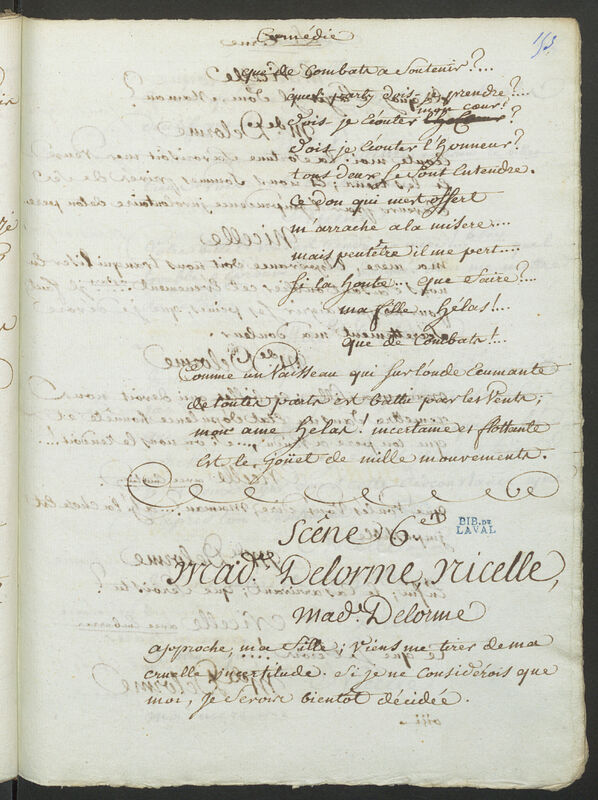 Comédie
153
que de Combats a soutenir?...
quel party dois-je prendre?...
mon cœur?
dois je Ecouter ?
dois je Ecouter l'honneur?
tous deux se font Entendre.
Ce don qui m'est offert
m'arrache a la misere....
mais peutêtre il me pert....
Si la honte... que faire?...
ma fille, helas!...
que de Combats!...
Comme un Vaisseau qui sur l'onde Ecumante
de toutes parts est Battu par les Vents;
mon ame helas! incertaine et flottante
Est le Joüet de mille mouvements.
Scêne 6e
BIB. DE
LAVAL
Made. Delorme, Nicelle,
Made. Delorme
approche, ma fille; viens me tirer de ma
cruelle incertitude. Si je ne considerois que
moi, je serois bientôt décidée.